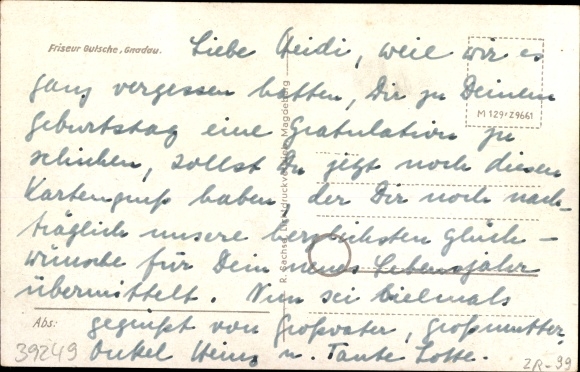 Friseur Gutsche, Gnadau.
Liebe Heidi, weil wir es
ganz vergessen hatten, Dir zu Deinem
Geburtstag eine Gratulation zu
schicken, sollst Du jetzt noch diesen
Kartengruß haben, der Dir noch nach-
träglich unsere herzlichsten Glück-
wünsche für Dein neues Lebensjahr
übermittelt. Nun sei vielmals
gegrüßt von Großvater, Großmutter,
Onkel Heinz u. Tante Lotte.
M 129/Z9661
R. Sachse, Magdeburg
Abs:
39249
ZR-99